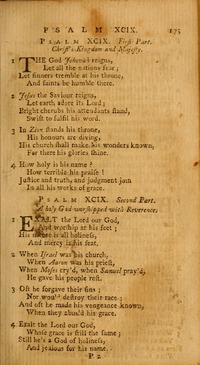 PSALM XCIX. 175
PSALM XCIX. First Part.
Christ's Kingdom and Majesty.
1 THE God Jehovah reigns,
Let all the nations fear;
Let sinners tremble at his throne,
And saints be humble there.
2 Jesus the Saviour reigns,
Let earth adore its Lord;
Bright cherubs his attendants stand,
Swift to fulfil his word.
3 In Zion stands his throne,
His honours are divine,
His church shall make his wonders known,
For there his glories shine.
4 How holy is his name?
How terrible his praise!
Justice and truth, and judgment join
In all his works of grace.
PSALM XCIX. Second Part.
A holy God worshipped with Reverence.
1 EXALT the Lord our God,
And worship at his feet;
His nature is all holiness,
And mercy is his seat.
2 When Israel was his church,
When Aaron was his priest,
When Moses cry'd, when Samuel pray'd,
He gave his people rest.
3 Oft he forgave their sins;
Nor would destroy their race;
And oft he made his vengeance known,
When they abus'd his grace.
4 Exalt the Lord our God,
Whose grace is still the same;
Still he's a God of holiness,
And jealous for his name.
P 2